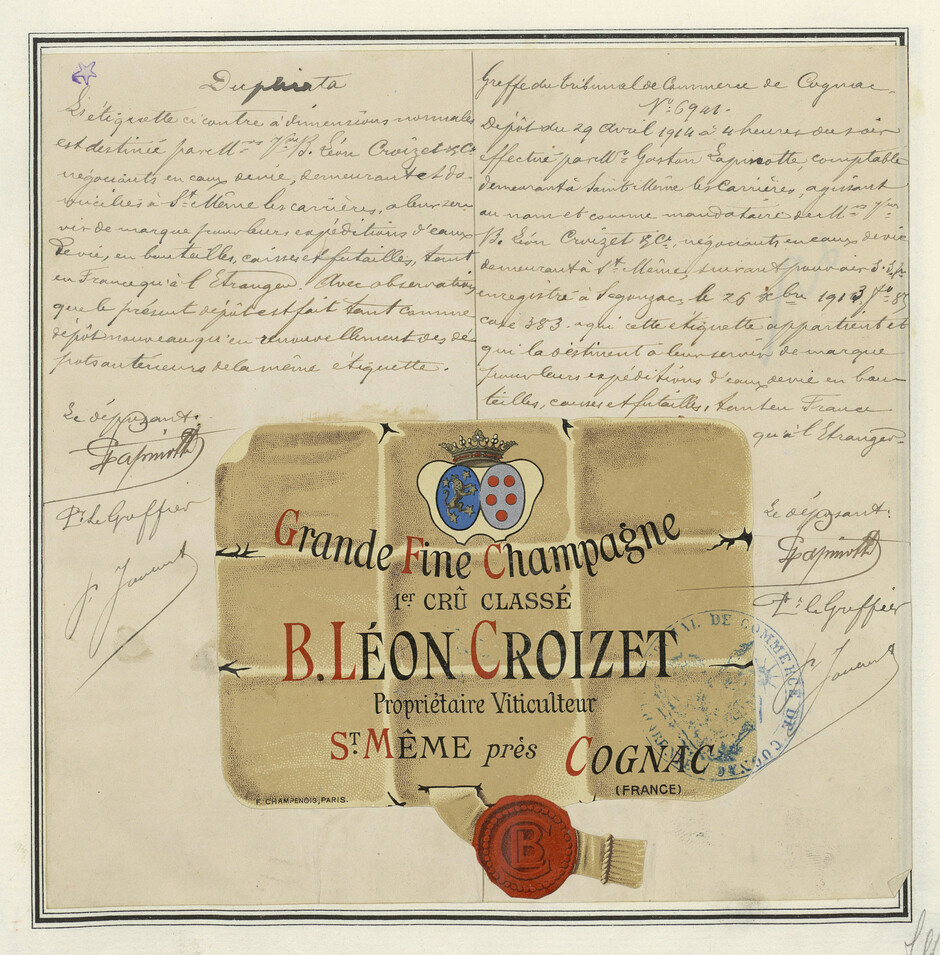 Duplicata
L'étiquette ci contre à dimensions normales
est destinée par Mrs Vve B. Léon Croizet & Cie
négociants en eaux de vie, demeurant et do-
miciliés à St Même les carrières, à leur ser-
vir de marque pour leurs expéditions d'eaux
de vie, en bouteilles, caisses et futailles, tant
en France qu'à l'Etranger. Avec observation
que le présent dépôt est fait tant comme
dépôt nouveau qu'en renouvellement des dé-
pôts antérieurs de la même étiquette.
Le déposant:
Pr le Greffier
Greffe du tribunal de Commerce de Cognac
No 6941.
Dépôt du 29 avril 1914 à 4 heures du soir
effectué par Mr Gaston Lapinotte, comptable
demeurant à Saint Même les Carrières, agissant
au nom et comme mandataire de Mrs Vve
B. Léon Croizet & Cie, négociants en eaux de vie
demeurant à St Même, suivant pouvoir s.s.p.
enregistré à Segonzac, le 26 xbre 1913, fo 85
case 383. à qui cette étiquette appartient et
qui la destinent à leur servir de marque
pour leurs expéditions d'eaux de vie en bou-
teilles, caisses et futailles, tant en France
qu'à l'Etranger.
Le déposant:
Pr le Greffier
Grande Fine Champagne
1er CRÛ CLASSÉ
B. LÉON CROIZET
Propriétaire Viticulteur
ST. MÊME près COGNAC
(FRANCE)
F. CHAMPENOIS, PARIS.
TRIBUNAL DE COMMERCE DE COGNAC